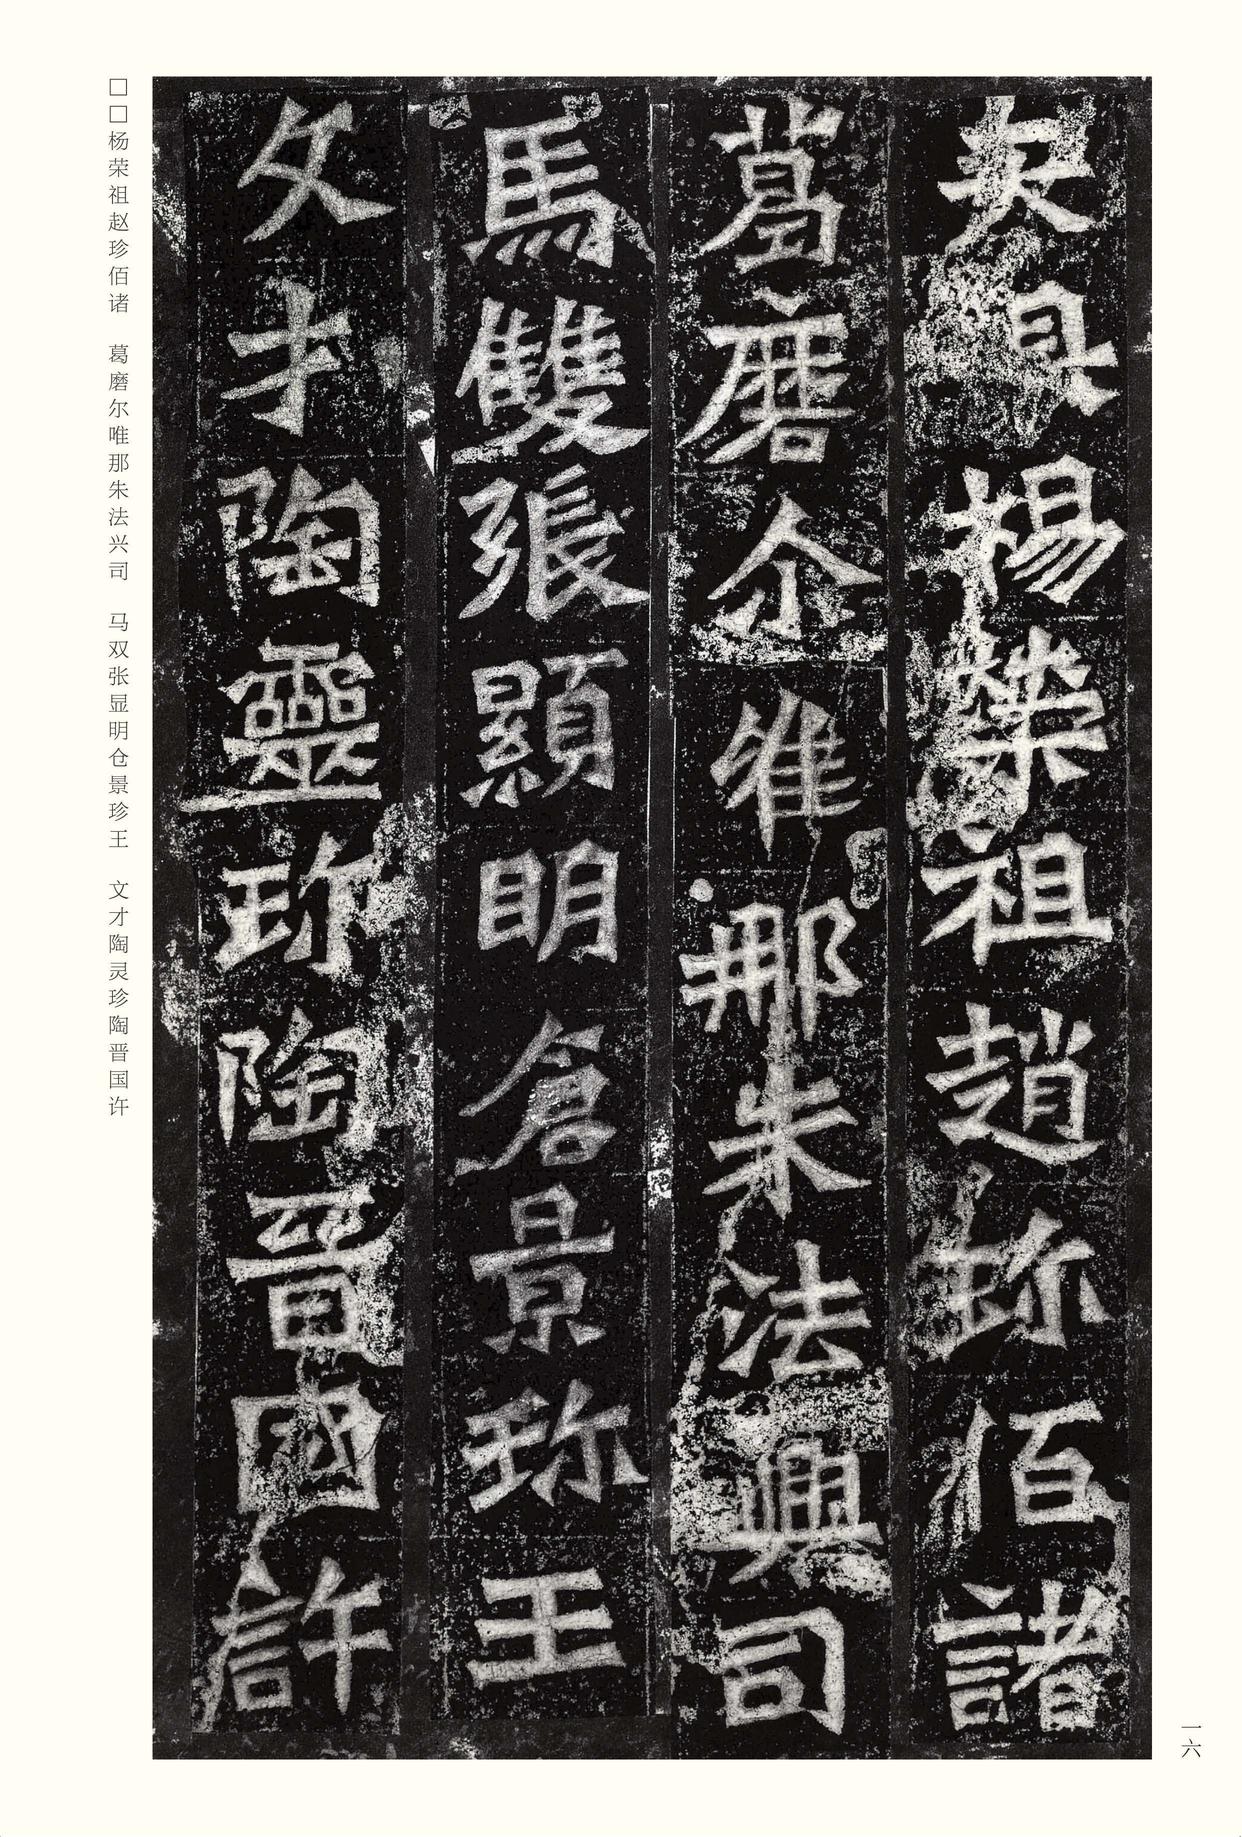 楊榮祖趙珎佰諸
葛磨尒唯那朱法興司
馬雙張顯明倉景珎王
文才陶靈珎陶晋國許
□□杨荣祖赵珍佰诸　葛磨尔唯那朱法兴司　马双张显明仓景珍王　文才陶灵珍陶晋国许
一六